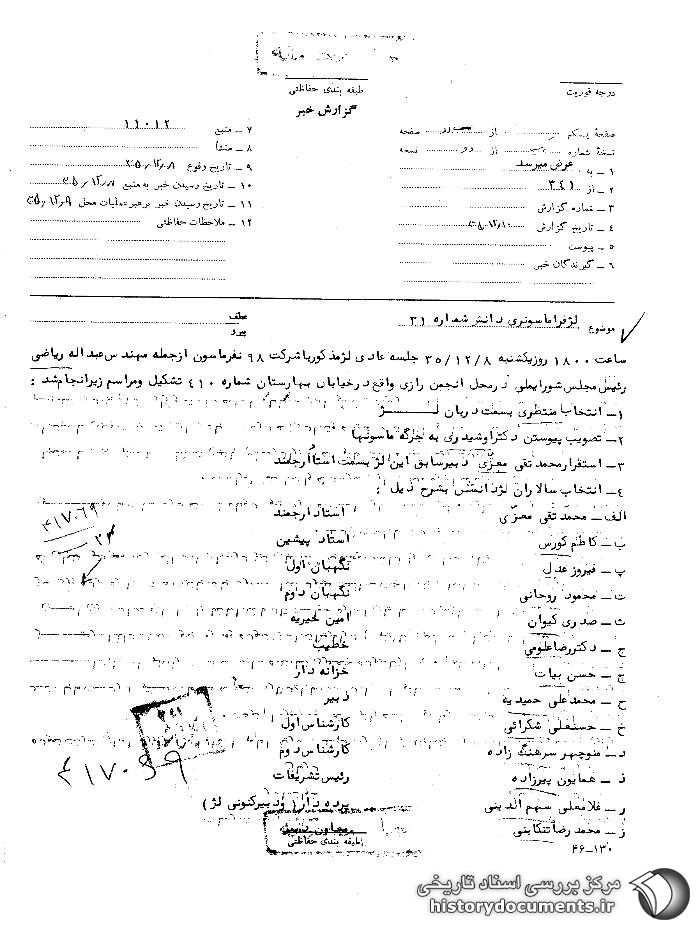 طبقه بندی حفاظتی
گزارش خبر
درجه فوریت
صفحهٔ یکم از صفحه
نسخهٔ شماره از دو نسخه
۱ ــ به عرض میرسد
۲ ــ از ۳۴۱
۳ ــ شماره گزارش
۴ ــ تاریخ گزارش
۵ ــ پیوست
۶ ــ گیرندگان خبر
۷ ــ منبع ۱۱۰۱۲
۸ ــ منشأ
۹ ــ تاریخ وقوع ۳۵/۱۲/۸
۱۰ ــ تاریخ رسیدن خبر به منبع ۳۵/۱۲/۸
۱۱ ــ تاریخ رسیدن خبر برهبر عملیات محل ۳۵/۱۲/۹
۱۲ ــ ملاحظات حفاظتی
موضوع لژفراماسونری دانش شماره ۳۱
عطف
پیرو
ساعت ۱۸۰۰ روزیکشنبه ۳۵/۱۲/۸ جلسه عادی لژمذکورباشرکت ۹۸ نفرماسون ازجمله مهندس عبداله ریاضی
رئیس مجلس شورایملی درمحل انجمن رازی واقع درخیابان بهارستان شماره ۴۱۰ تشکیل ومراسم زیرانجام شد :
۱ــ انتخاب منتظری بسمت دربان لــــژ
۲ــ تصویب پیوستن دکتراوشیدری به جرگه ماسونها
۳ــ استقرارمحمدتقی معزّی دبیرسابق این لژ بسمت استادارجمند
۴ــ انتخاب سالاران لژدانش بشرح ذیل :
الف ــ محمدتقی معزّی استادارجمند
ب ــ کاظم کورس استاد پیشین
پ ــ فیروز عدل نگهبان اول
ت ــ محمود روحانی نگهبان دوم
ث ــ صدری کیوان امین الخیریه
ج ــ دکتررضاعلومی خطیب
چ ــ حسن بیات خزانه دار
ح ــ محمدعلی حمیدیه دبیر
خ ــ حسنعلی شکرائی کارشناس اول
د ــ منوچهر سرهنگ زاده کارشناس دوم
ذ ــ همایون پیرزاده رئیس تشریفات
ر ــ غلامعلی سهم الدینی پرده دار ( ودبیرکنونی لژ )
ز ــ محمدرضاتنکابنی معاون دبیر
۴۶-۱۳۰
طبقه بندی حفاظتی
۴۱۷۰۶۹
۴۱۷۰۶۹
مرکز بررسی اسناد تاریخی
historydocuments.ir